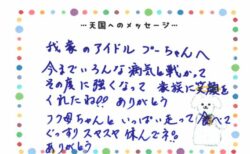 …天国へのメッセージ…
我家のアイドル プーちゃんへ
今までいろんな病気と戦かって
その度に強くなって 家族に笑顔を
くれたね?? ありがとう
フク母ちゃんと いっぱい走って 食べて
ぐっすりスヤスヤ 休んでネ!!
ありがとう